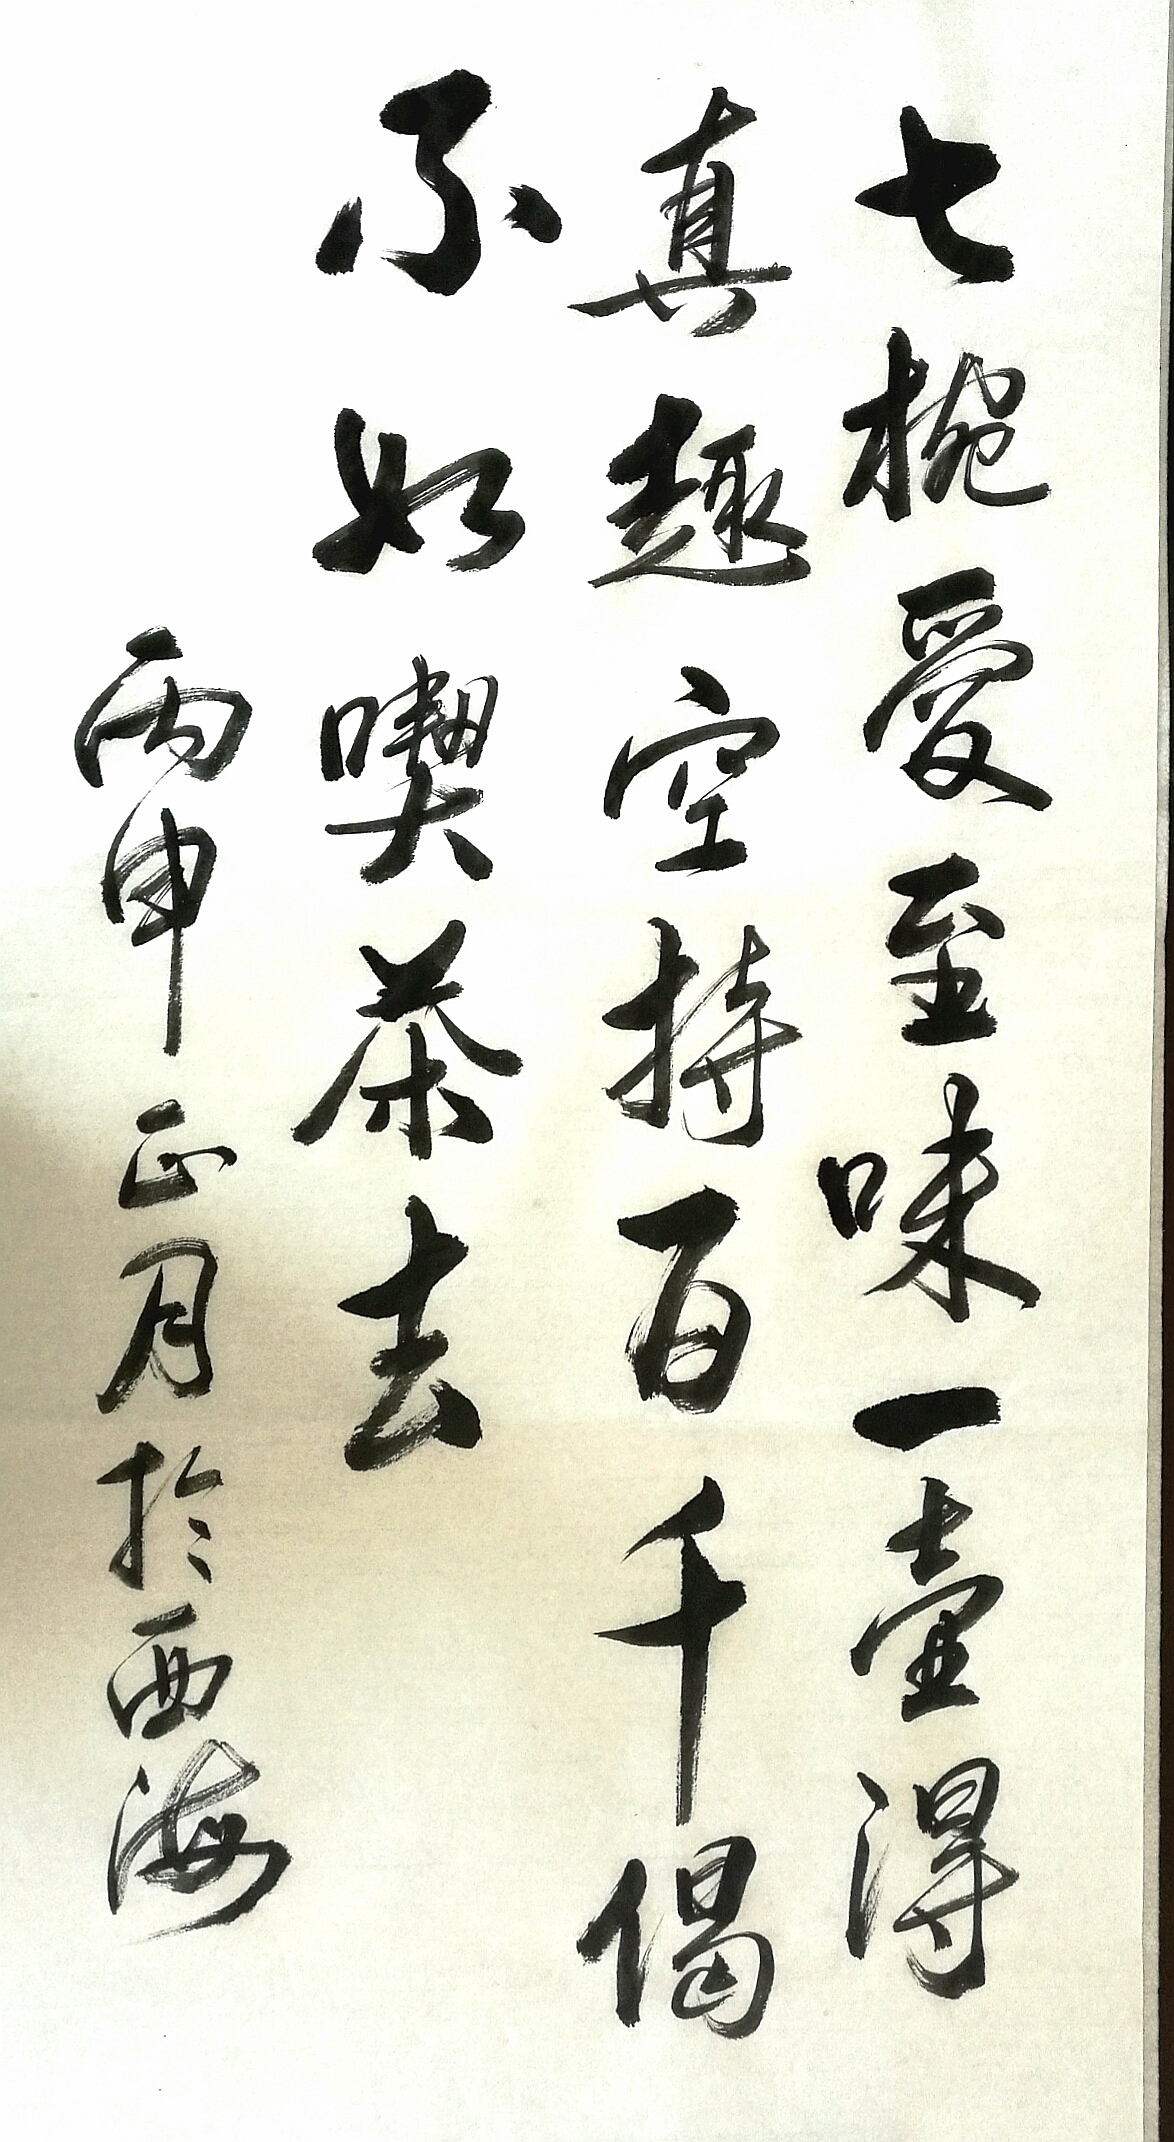 七椀愛至味一壺得
真趣空持百千偈
不如喫茶去
丙申正月於西海